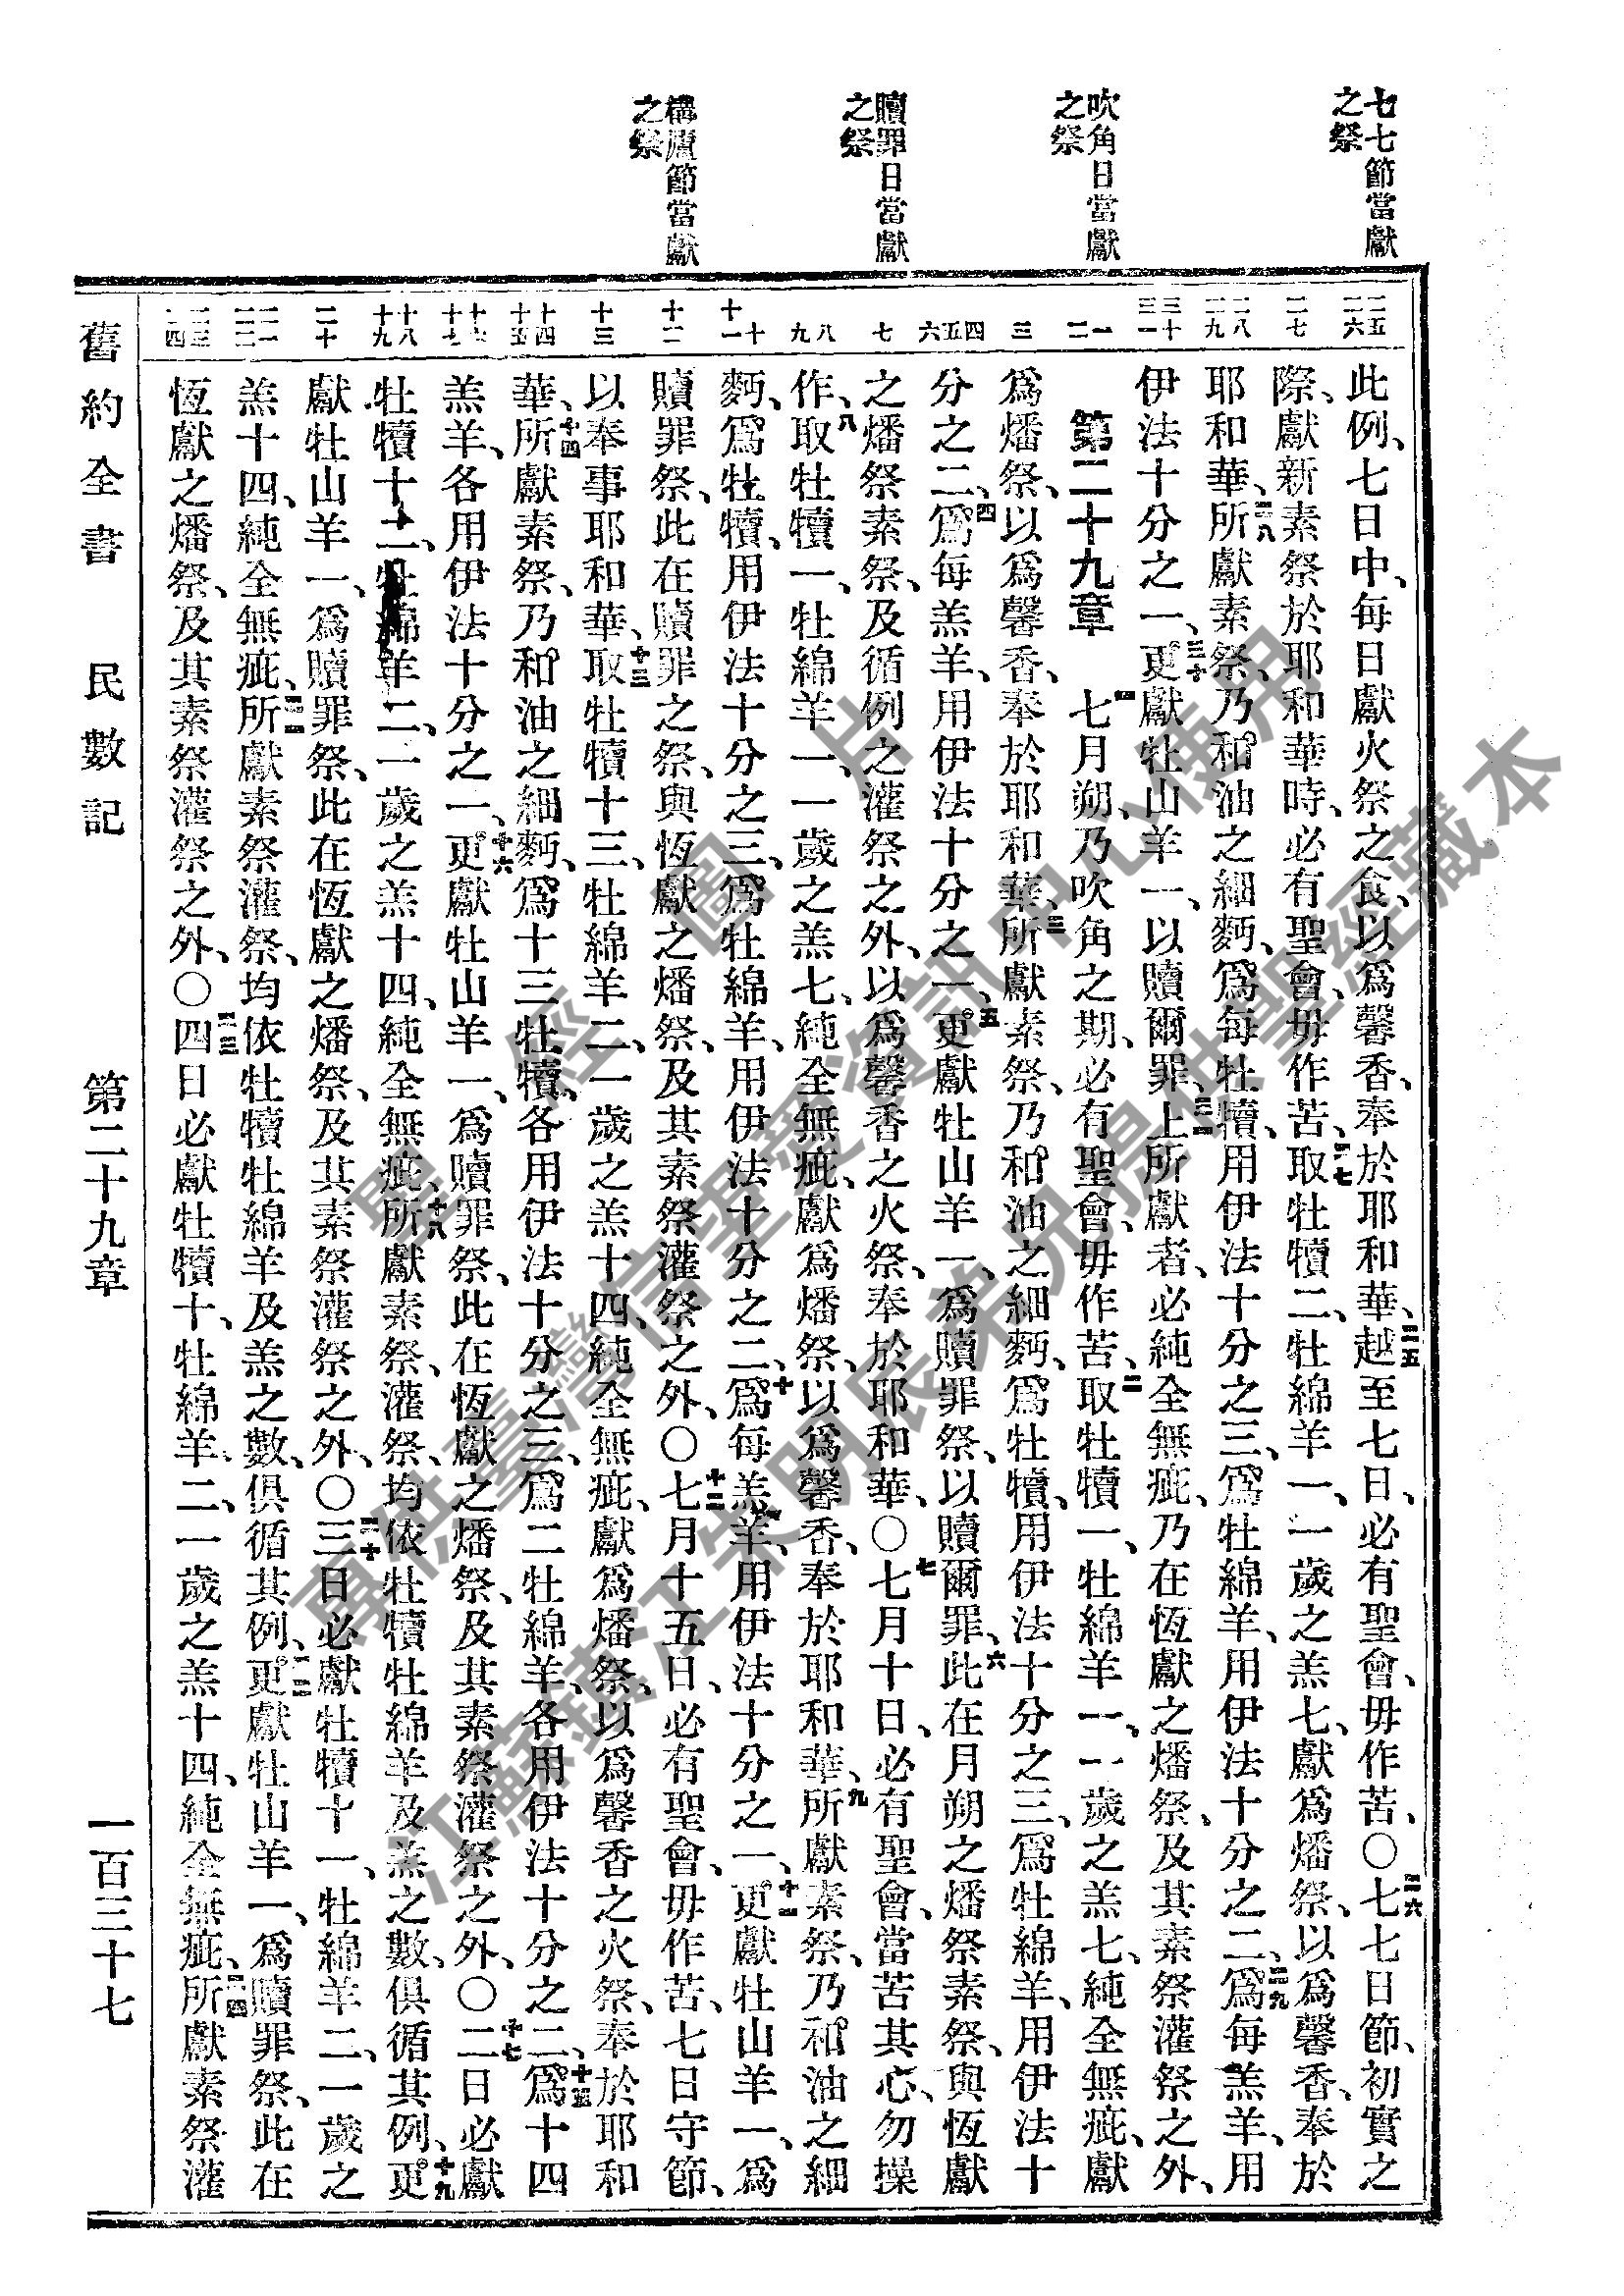 七七節當獻
之祭
吹角日當獻
之祭
贖罪日當獻
之祭
構廬節當獻
之祭
二五
二六
二七
二八
二九
三十
三一
一
二
三
四
五
六
七
八
九
十
十一
十二
十三
十四
十五
十六
十七
十八
十九
二十
二一
二二
二三
二四
此例、七日中、每日獻火祭之食、以爲馨香、奉於耶和華、二五越至七日、必有聖會、毋作苦、〇二六七七日節、初實之
際、獻新素祭於耶和華時、必有聖會、毋作苦、二七取牡犢二、牡綿羊一、一歲之羔七、獻爲燔祭、以爲馨香、奉於
耶和華、二八所獻素祭、乃和油之細麪、爲每牡犢、用伊法十分之三、爲牡綿羊、用伊法十分之二、二九爲每羔羊、用
伊法十分之一、三十更獻牡山羊一、以贖爾罪、三一上所獻者、必純全無疵、乃在恆獻之燔祭、及其素祭灌祭之外、
第二十九章 一七月朔、乃吹角之期、必有聖會、毋作苦、二取牡犢一、牡綿羊一、一歲之羔七、純全無疵、獻
爲燔祭、以爲馨香、奉於耶和華、三所獻素祭、乃和油之細麪、爲牡犢、用伊法十分之三、爲牡綿羊、用伊法十
分之二、四爲每羔羊、用伊法十分之一、五更獻牡山羊一、爲贖罪祭、以贖爾罪、六此在月朔之燔祭素祭、與恆獻
之燔祭素祭、及循例之灌祭之外、以爲馨香之火祭、奉於耶和華、〇七七月十日、必有聖會、當苦其心、勿操
作、八取牡犢一、牡綿羊一、一歲之羔七、純全無疵、獻爲燔祭、以爲馨香、奉於耶和華、九所獻素祭、乃和油之細
麪、爲牡犢、用伊法十分之三、爲牡綿羊、用伊法十分之二、十爲每羔羊、用伊法十分之一、十一更獻牡山羊一、爲
贖罪祭、此在贖罪之祭、與恆獻之燔祭、及其素祭灌祭之外、〇十二七月十五日、必有聖會、毋作苦、七日守節、
以奉事耶和華、十三取牡犢十三、牡綿羊二、一歲之羔十四、純全無疵、獻爲燔祭、以爲馨香之火祭、奉於耶和
華、十四所獻素祭、乃和油之細麪、爲十三牡犢、各用伊法十分之三、爲二牡綿羊、各用伊法十分之二、十五爲十四
羔羊、各用伊法十分之一、十六更獻牡山羊一、爲贖罪祭、此在恆獻之燔祭、及其素祭灌祭之外、〇十七二日必獻
牡犢十二、牡綿羊二、一歲之羔十四、純全無疵、十八所獻素祭、灌祭、均依牡犢牡綿羊及羔之數、俱循其例、十九更
獻牡山羊一、爲贖罪祭、此在恆獻之燔祭、及其素祭灌祭之外、〇二十三日必獻牡犢十一、牡綿羊二、一歲之
羔十四、純全無疵、二一所獻素祭灌祭、均依牡犢牡綿羊及羔之數、俱循其例、二二更獻牡山羊一、爲贖罪祭、此在
恆獻之燔祭、及其素祭灌祭之外、〇二三四日必獻牡犢十、牡綿羊二、一歲之羔十四、純全無疵、二四所獻素祭灌
舊約全書 民數記 第二十九章 一百三十七
聖經圖片
專供臺灣信望愛資訊中心使用
江蘇鎮江朱明辰弟兄提供聖經藏本